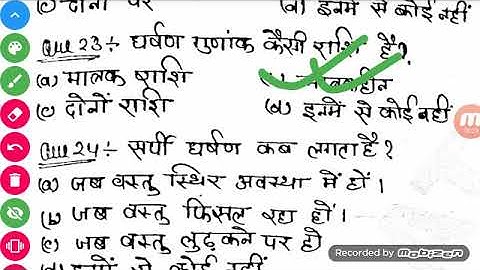 (c) दोनों पर (d) इनमें से कोई नहीं
Que 23 ÷ घर्षण गुणांक कैसी राशि है?
(a) मात्रक राशि
(c) दोनों राशि (d) इनमें से कोई नहीं
Que 24 ÷ सर्पी घर्षण कब लगता है?
(a) जब वस्तु स्थिर अवस्था में हों।
(b) जब वस्तु फिसल रहा हों।
(c) जब वस्तु लुढ़कने पर हो
(d) इनमें से कोई नहीं
Recorded by Mobizen